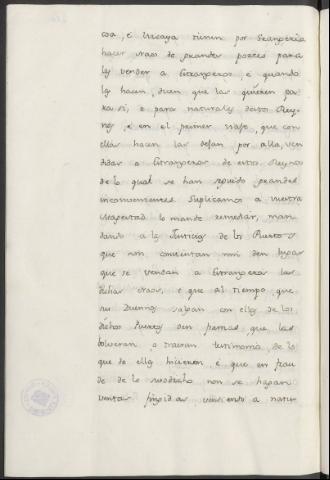 coa, e Vizcaya tienen por Grangeria
hacer Naos de grandes portes para
las vender a Estrangeros, e quando
las hacen, dicen que las quieren pa-
ra si, e para naturales destos Rey-
nos, e en el primer viaje, que con
ellas hacen las dejan por alla, ven-
didas a Estrangeros de estos Reynos
de lo qual se han seguido grandes
inconvenientes Suplicamos a vuestra
Magestad lo mande remediar, man-
dando a las Justicias de los Puertos
que non consientan nin den lugar
que se vendan a Estrangeros las
dichas Naos, e que al tiempo, que
sus Dueños salgan con ellas de los
dichos Puertos den fianzas, que las
bolveran, o traeran testimonio de lo
que de ellas hicieron, e que en frau-
de de lo susodicho non se hagan
ventas fingidas